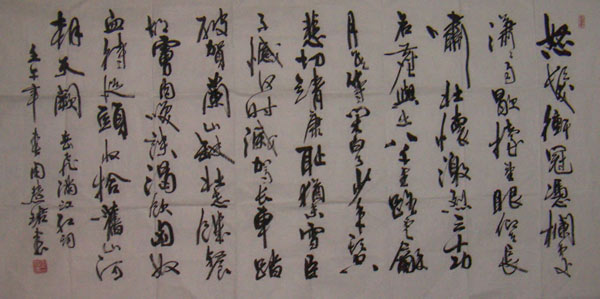 怒髮衝冠憑欄處
瀟瀟雨歇擡望眼仰天長
嘯壯懷激烈三十功
名塵與土八千里路雲和
月莫等閒白了少年頭空
悲切靖康恥猶未雪臣
子憾何時滅駕長車踏
破賀蘭山缺壯志飢餐
胡虜肉笑談渴飲匈奴
血待從頭收拾舊山河
朝天闕 岳飛滿江紅詞
壬午年 書